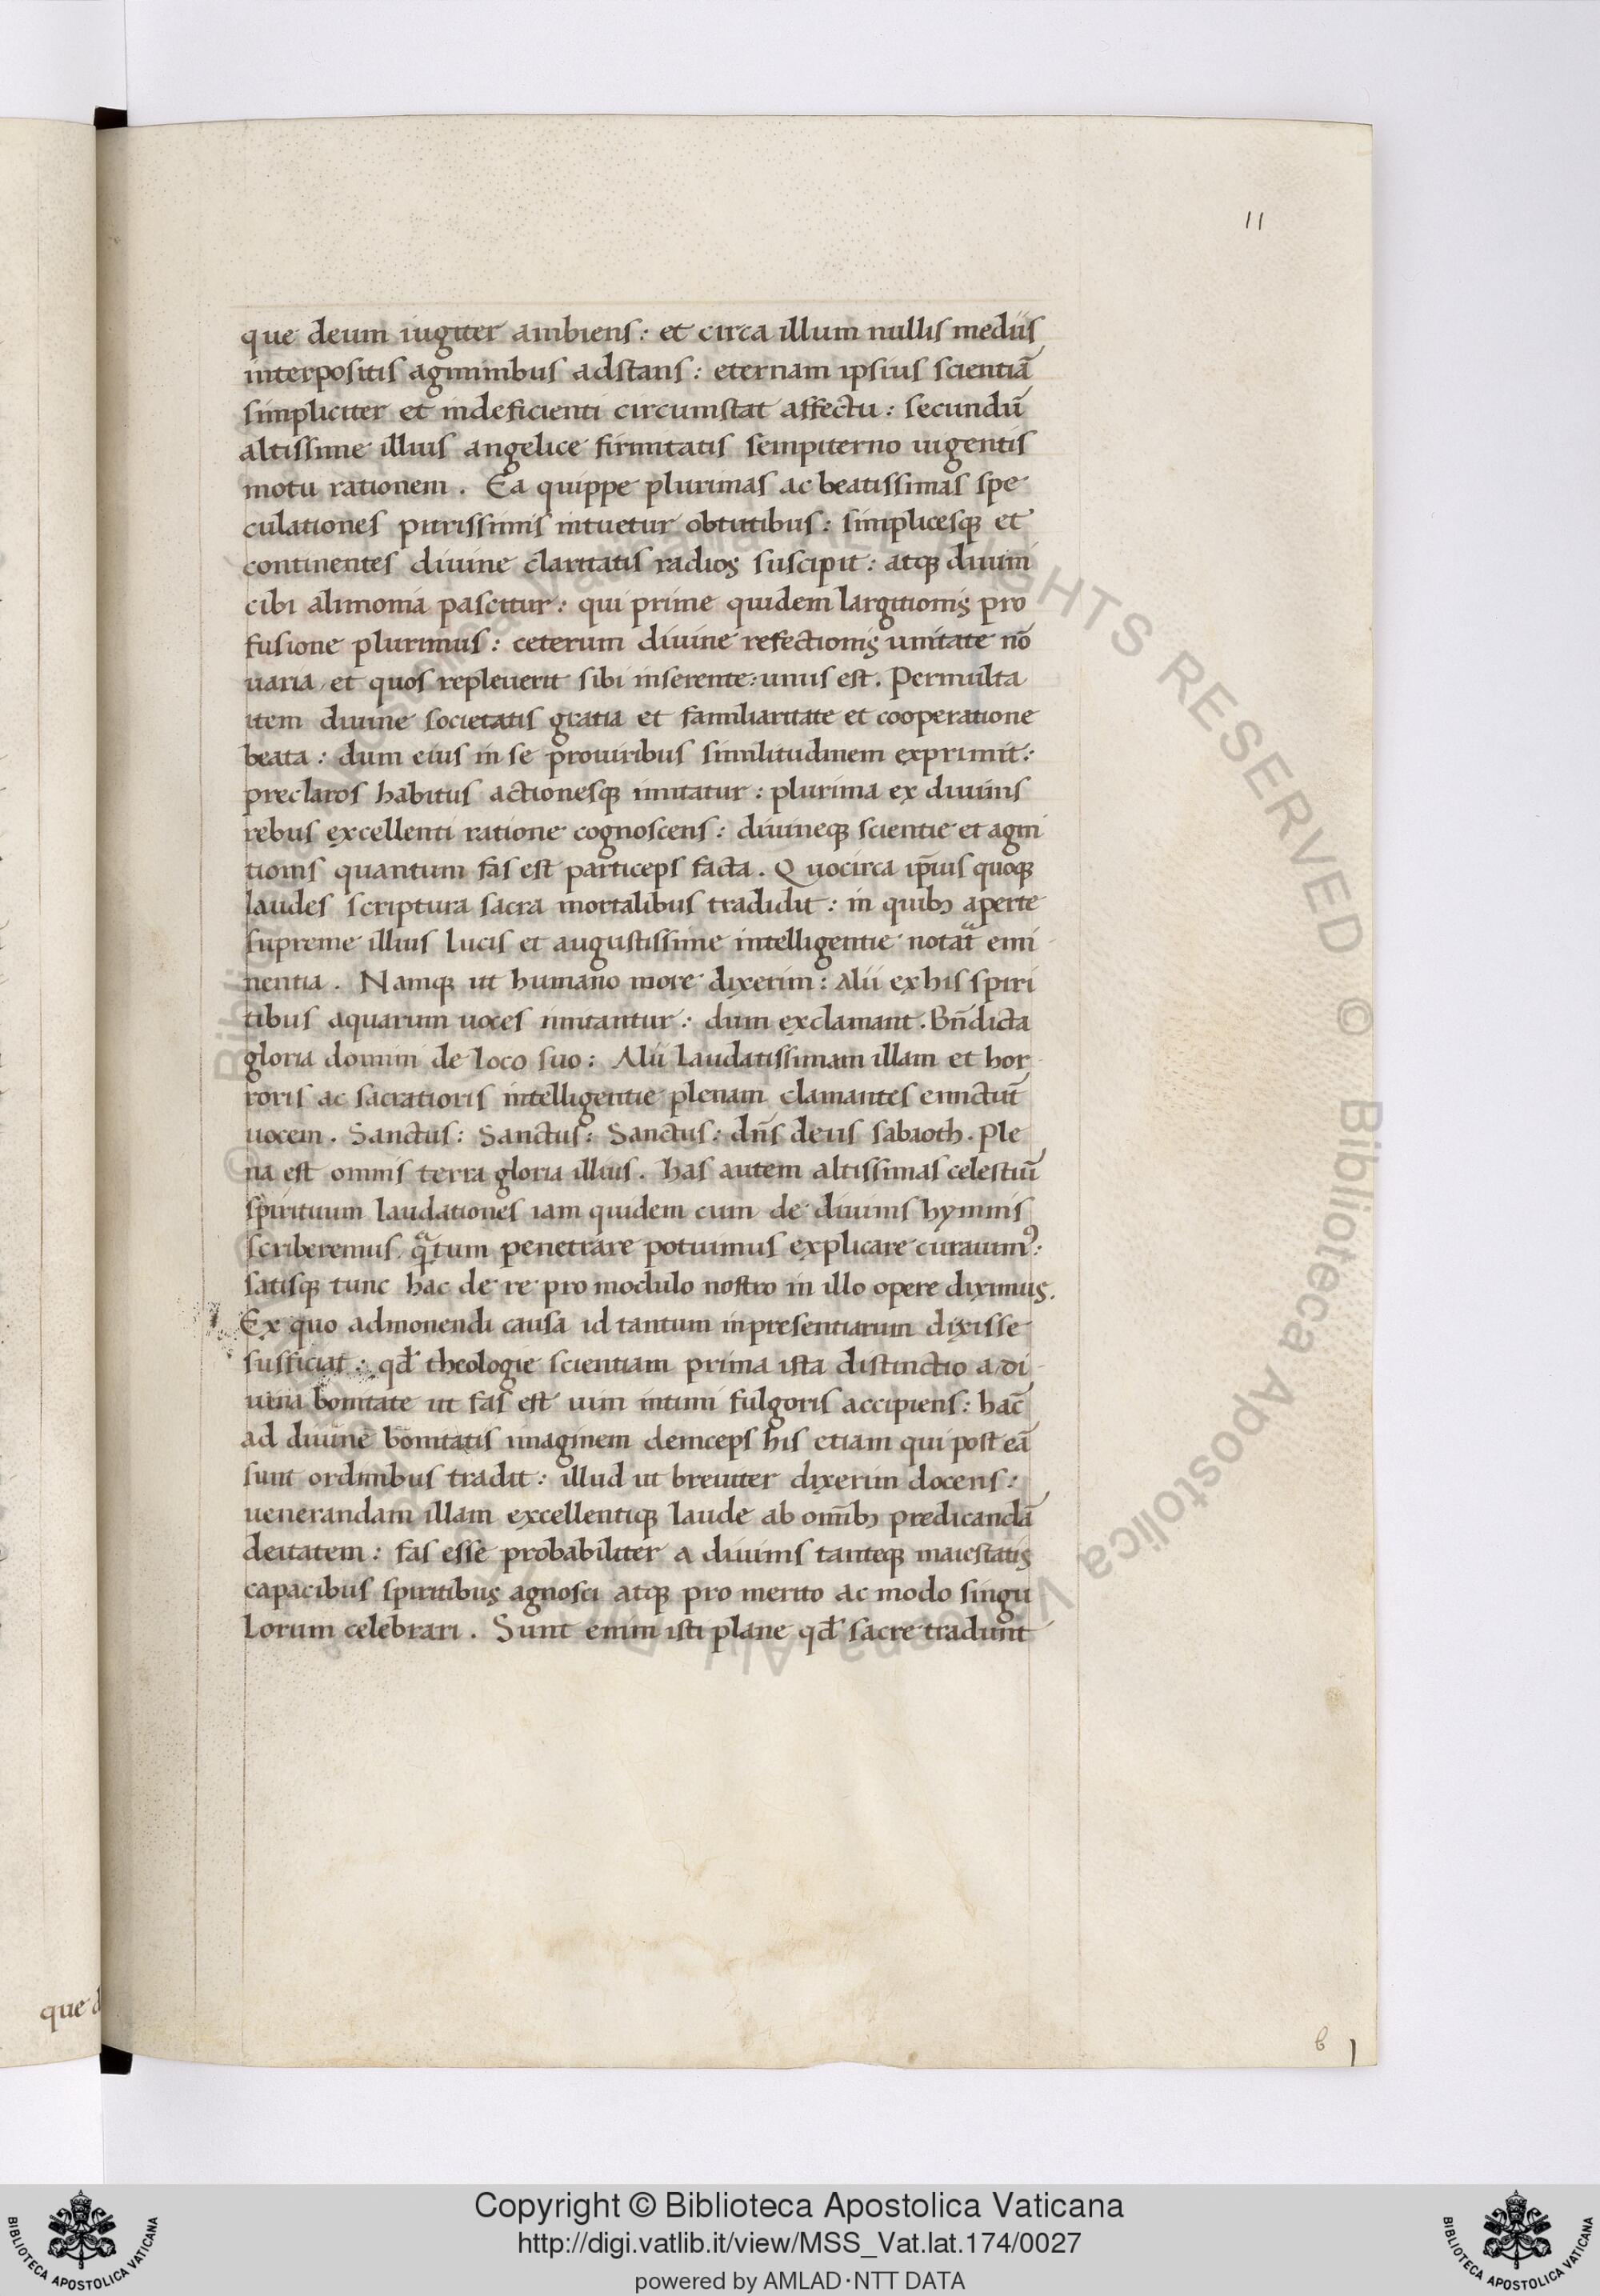 11
que deum iugiter ambiens: et circa illum nullis mediis
interpositis agminibus adstans: eternam ipsius scientiā
simpliciter et indeficienti circumstat affectu: secundū
altissime illius angelice firmitatis sempiterno uigentis
motu rationem. Ea quippe plurimas ac beatissimas spe
culationes purissimis intuetur obtutibus: simplicesq; et
continentes diuine claritatis radios suscipit: atq; diuini
cibi alimonia pascitur: qui prime quidem largitionis pro
fusione plurimus: ceterum diuine refectionis unitate nō
uaria et quos repleuerit sibi inserente: unus est. Permulta
item diuine societatis gratia et familiaritate et cooperatione
beata: dum eius in se pro uiribus similitudinem exprimit:
preclaros habitus actionesq; imitatur: plurima ex diuinis
rebus excellenti ratione cognoscens: diuineq; scientie et agni
tionis quantum fas est particeps facta. Quocirca ip̄ius quoq;
laudes scriptura sacra mortalibus tradidit: in quib; aperte
supreme illius lucis et augustissime intelligentie notatᷓ emi
nentia. Namq; ut humano more dixerim: Alii ex his spiri
tibus aquarum uoces imitantur: dum exclamant. Bn̄dicta
gloria domini de loco suo: Alii laudatissimam illam et hor
roris ac sacratioris intelligentie plenam clamantes emictūt
uocem. Sanctus: Sanctus: Sanctus: dn̄s deus sabaoth. Ple
na est omnis terra gloria illius. has autem altissimas celestiū
spirituum laudationes iam quidem cum de diuinis hymnis
scriberemus. qᷓtum penetrare potuimus explicare curauimꝰ:
satisq; tunc hac de re pro modulo nostro in illo opere diximus.
Ex quo admonendi causa id tantum inpresentiarum dixisse
sufficiat: qđ theologie scientiam prima ista distinctio a di
uina bonitate ut fas est uim intimi fulgoris accipiens: hac̄
ad diuine bonitatis imaginem deinceps his etiam qui post eā
sunt ordinibus tradit: illud ut breuiter dixerim docens:
uenerandam illam excellentiq; laude ab om̄ib; predicandā
deitatem: fas esse probabiliter a diuinis tanteq; maiestatis
capacibus spiritibus agnosci atq; pro merito ac modo singu
lorum celebrari. Sunt enim isti plane qđ sacre tradunt
que d
b 1
Copyright © Biblioteca Apostolica Vaticana
http://digi.vatlib.it/view/MSS_Vat.lat.174/0027
powered by AMLAD·NTT DATA
BIBLIOTECA APOSTOLICA VATICANA
BIBLIOTECA APOSTOLICA VATICANA